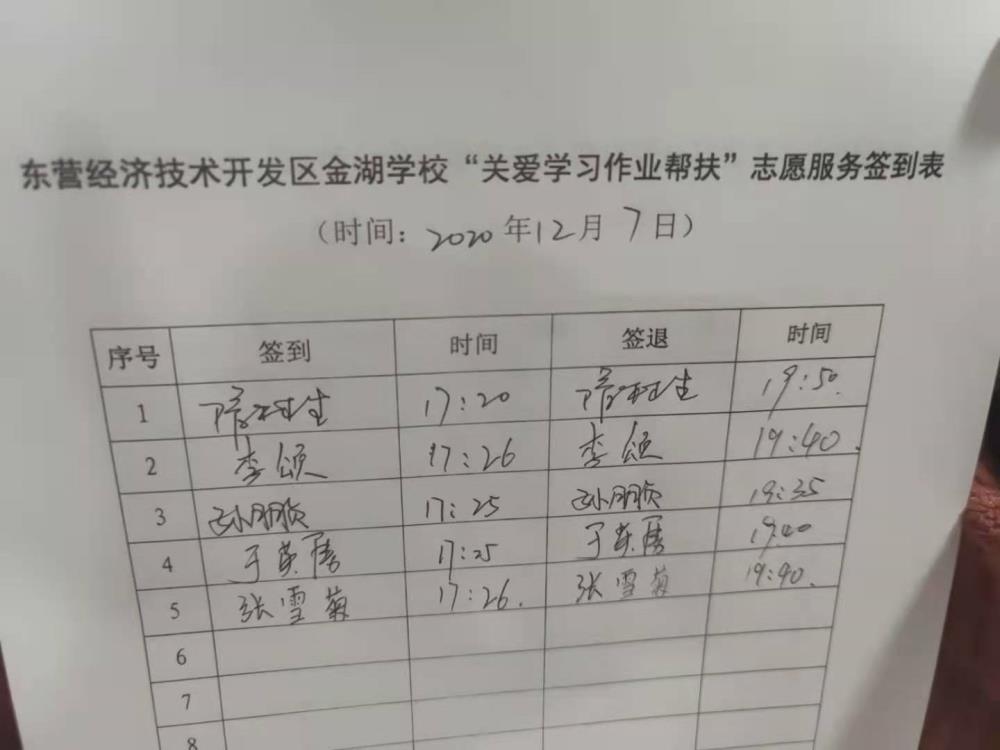 东营经济技术开发区金湖学校“关爱学习作业帮扶”志愿服务签到表
（时间：2020年12月7日）
序号 签到 时间 签退 时间
1 17:20 19:50.
2 李颂 17:26 李颂 19:40.
3 17:25 19:35
4 17:25 19:40
5 张雪菊 17:26. 张雪菊 19:40.
6
7
8